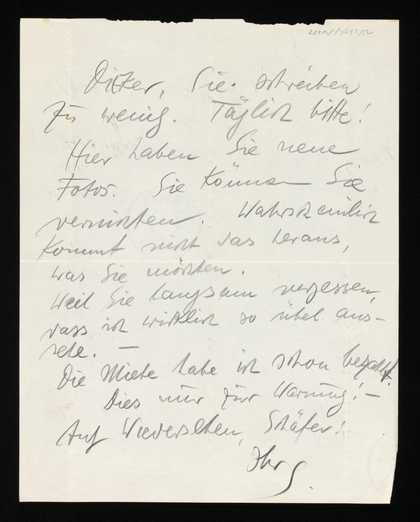 Dieter, Sie schreiben
zu wenig. Täglich bitte!
Hier haben Sie neue
Fotos. Sie können Sie
vernichten. Wahrscheinlich
kommt nicht das heraus,
was Sie möchten.
Weil Sie langsam vergessen,
dass ich wirklich so übel aus-
sehe. —
Die Miete habe ich schon bezahlt.
Dies nur zur Warnung! —
Auf Wiedersehen, Schäfer!
Ihr S.